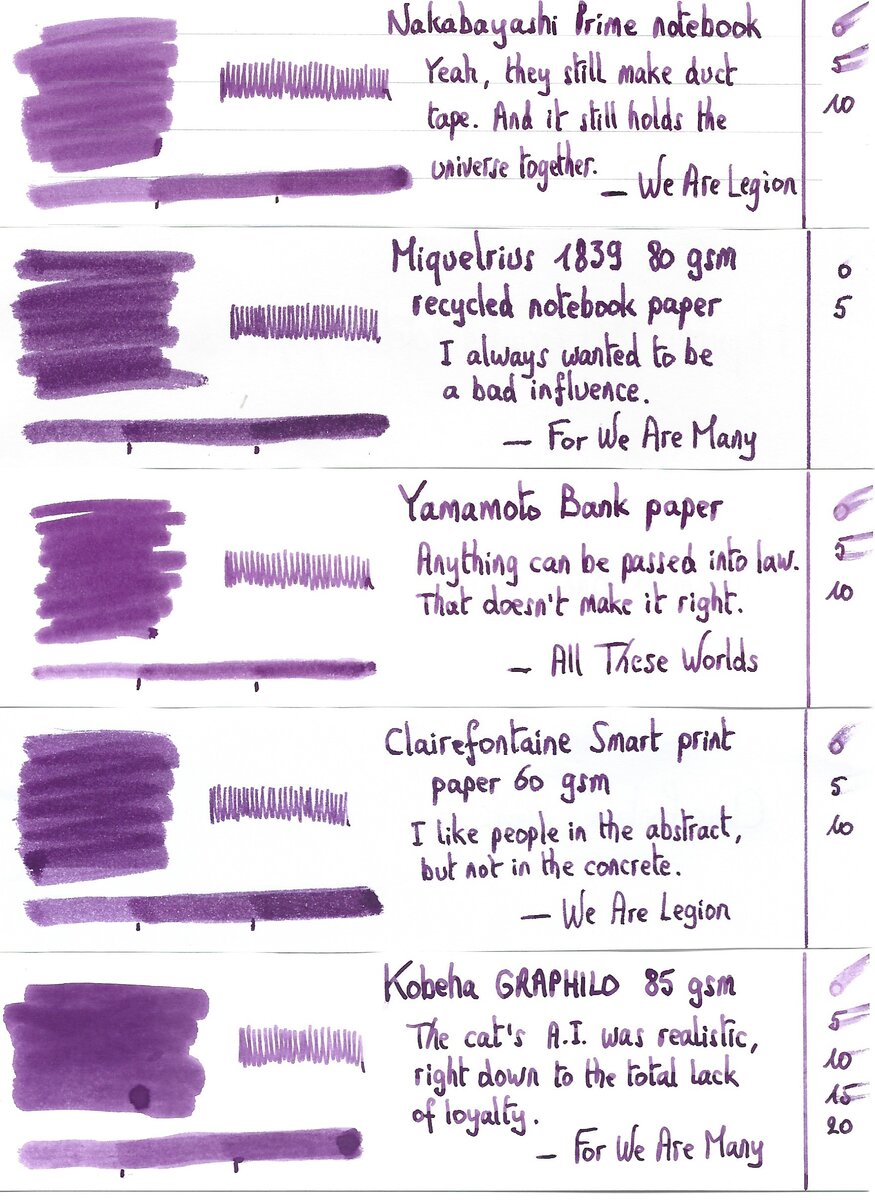 Nakabayashi Prime notebook
Yeah, they still make duct
tape. And it still holds the
universe together.
— We Are Legion
0
5
10
Miquelrius 1839 80 gsm
recycled notebook paper
I always wanted to be
a bad influence.
— For We Are Many
0
5
Yamamoto Bank paper
Anything can be passed into law.
That doesn't make it right.
— All These Worlds
0
5
10
Clairefontaine Smart print
paper 60 gsm
I like people in the abstract,
but not in the concrete.
— We Are Legion
0
5
10
Kobeha GRAPHILO 85 gsm
The cat's A.I. was realistic,
right down to the total lack
of loyalty.
— For We Are Many
0
5
10
15
20